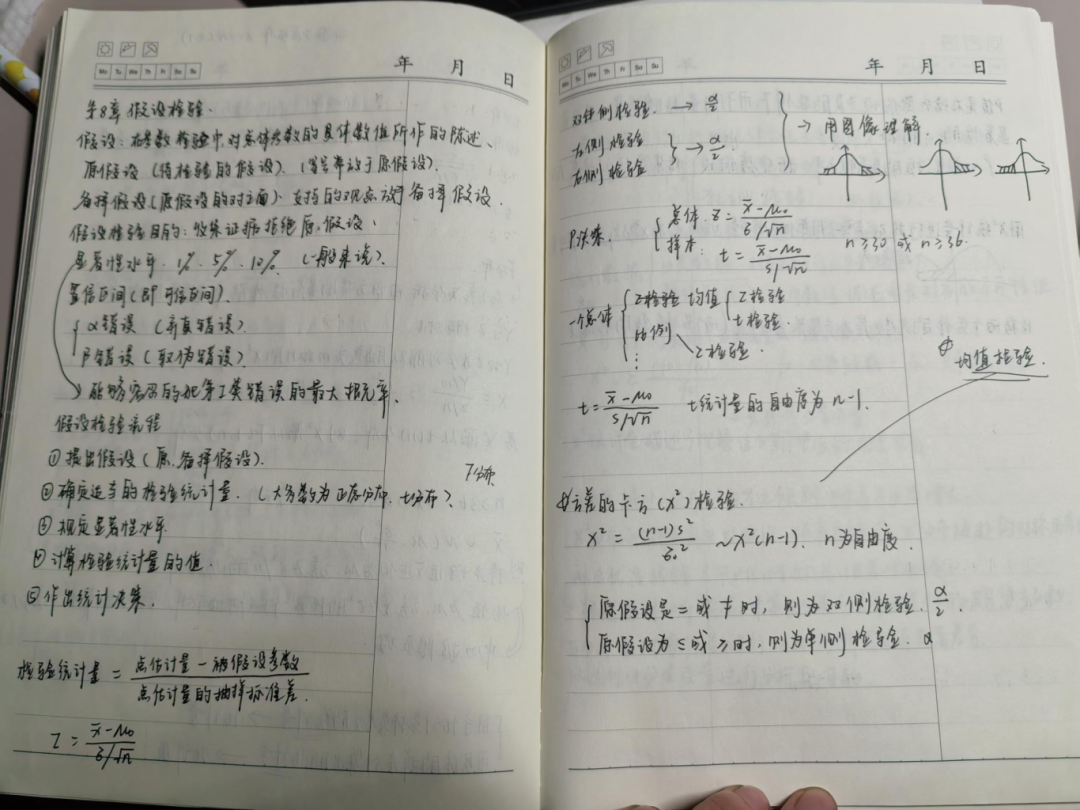 年 月 日
Mo Tu We Th Fr Sa Su
第8章 假设检验.
假设:在参数检验中,对总体参数的具体数值所作的陈述、
原假设(待检验的假设).(等号率放于原假设).
备择假设(原假设的对立面).支持的观点放于备择假设.
假设检验目的:收集证据拒绝原假设、
显著性水平.1%.5%.10% (一般来说).
置信区间(即可信区间).
α错误(弃真错误)
β错误(取伪错误)
能够容忍的犯第I类错误的最大概率.
假设检验流程
①提出假设(原.备择假设).
②确定适当的检验统计量.(大多数为正态分布.t分布)
③规定显著性水平.
④计算检验统计量的值.
⑤作出统计决策.
检验统计量 = 点估计量 - 被假设参数 / 点估计量的抽样标准差.
Z = x̄-μ0 / б/√n
年 月 日
Mo Tu We Th Fr Sa Su
侧检验 → α/2
左侧检验
右侧检验 } → α/2
→ 用图像理解
P决策.
总体. z = x̄-μ0 / б/√n
样本. t = x̄-μ0 / s/√n
n≥30 或 n≥36.
一个总体
Z检验 均值 { Z检验
t检验.
比例
Z检验.
⋮
均值检验.
t = x̄-μ0 / s/√n t统计量的自由度为 n-1.
方差的卡方(x²)检验.
x² = (n-1)s² / б0² ~x²(n-1). n为自由度.
原假设是=或≠时,则为双侧检验. α/2.
原假设为≤或≥时,则为单侧检验. α